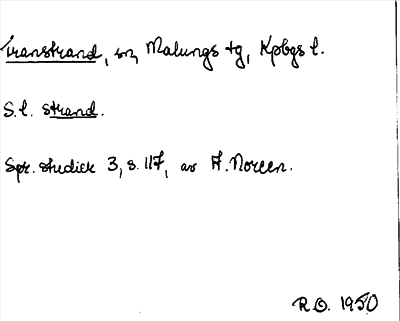 Transtrand, sn, Malungs tg, Kpbgs l.
S.l. strand.
Spr. studier 3, s. 117, av A. Noreen.
R.O. 1950